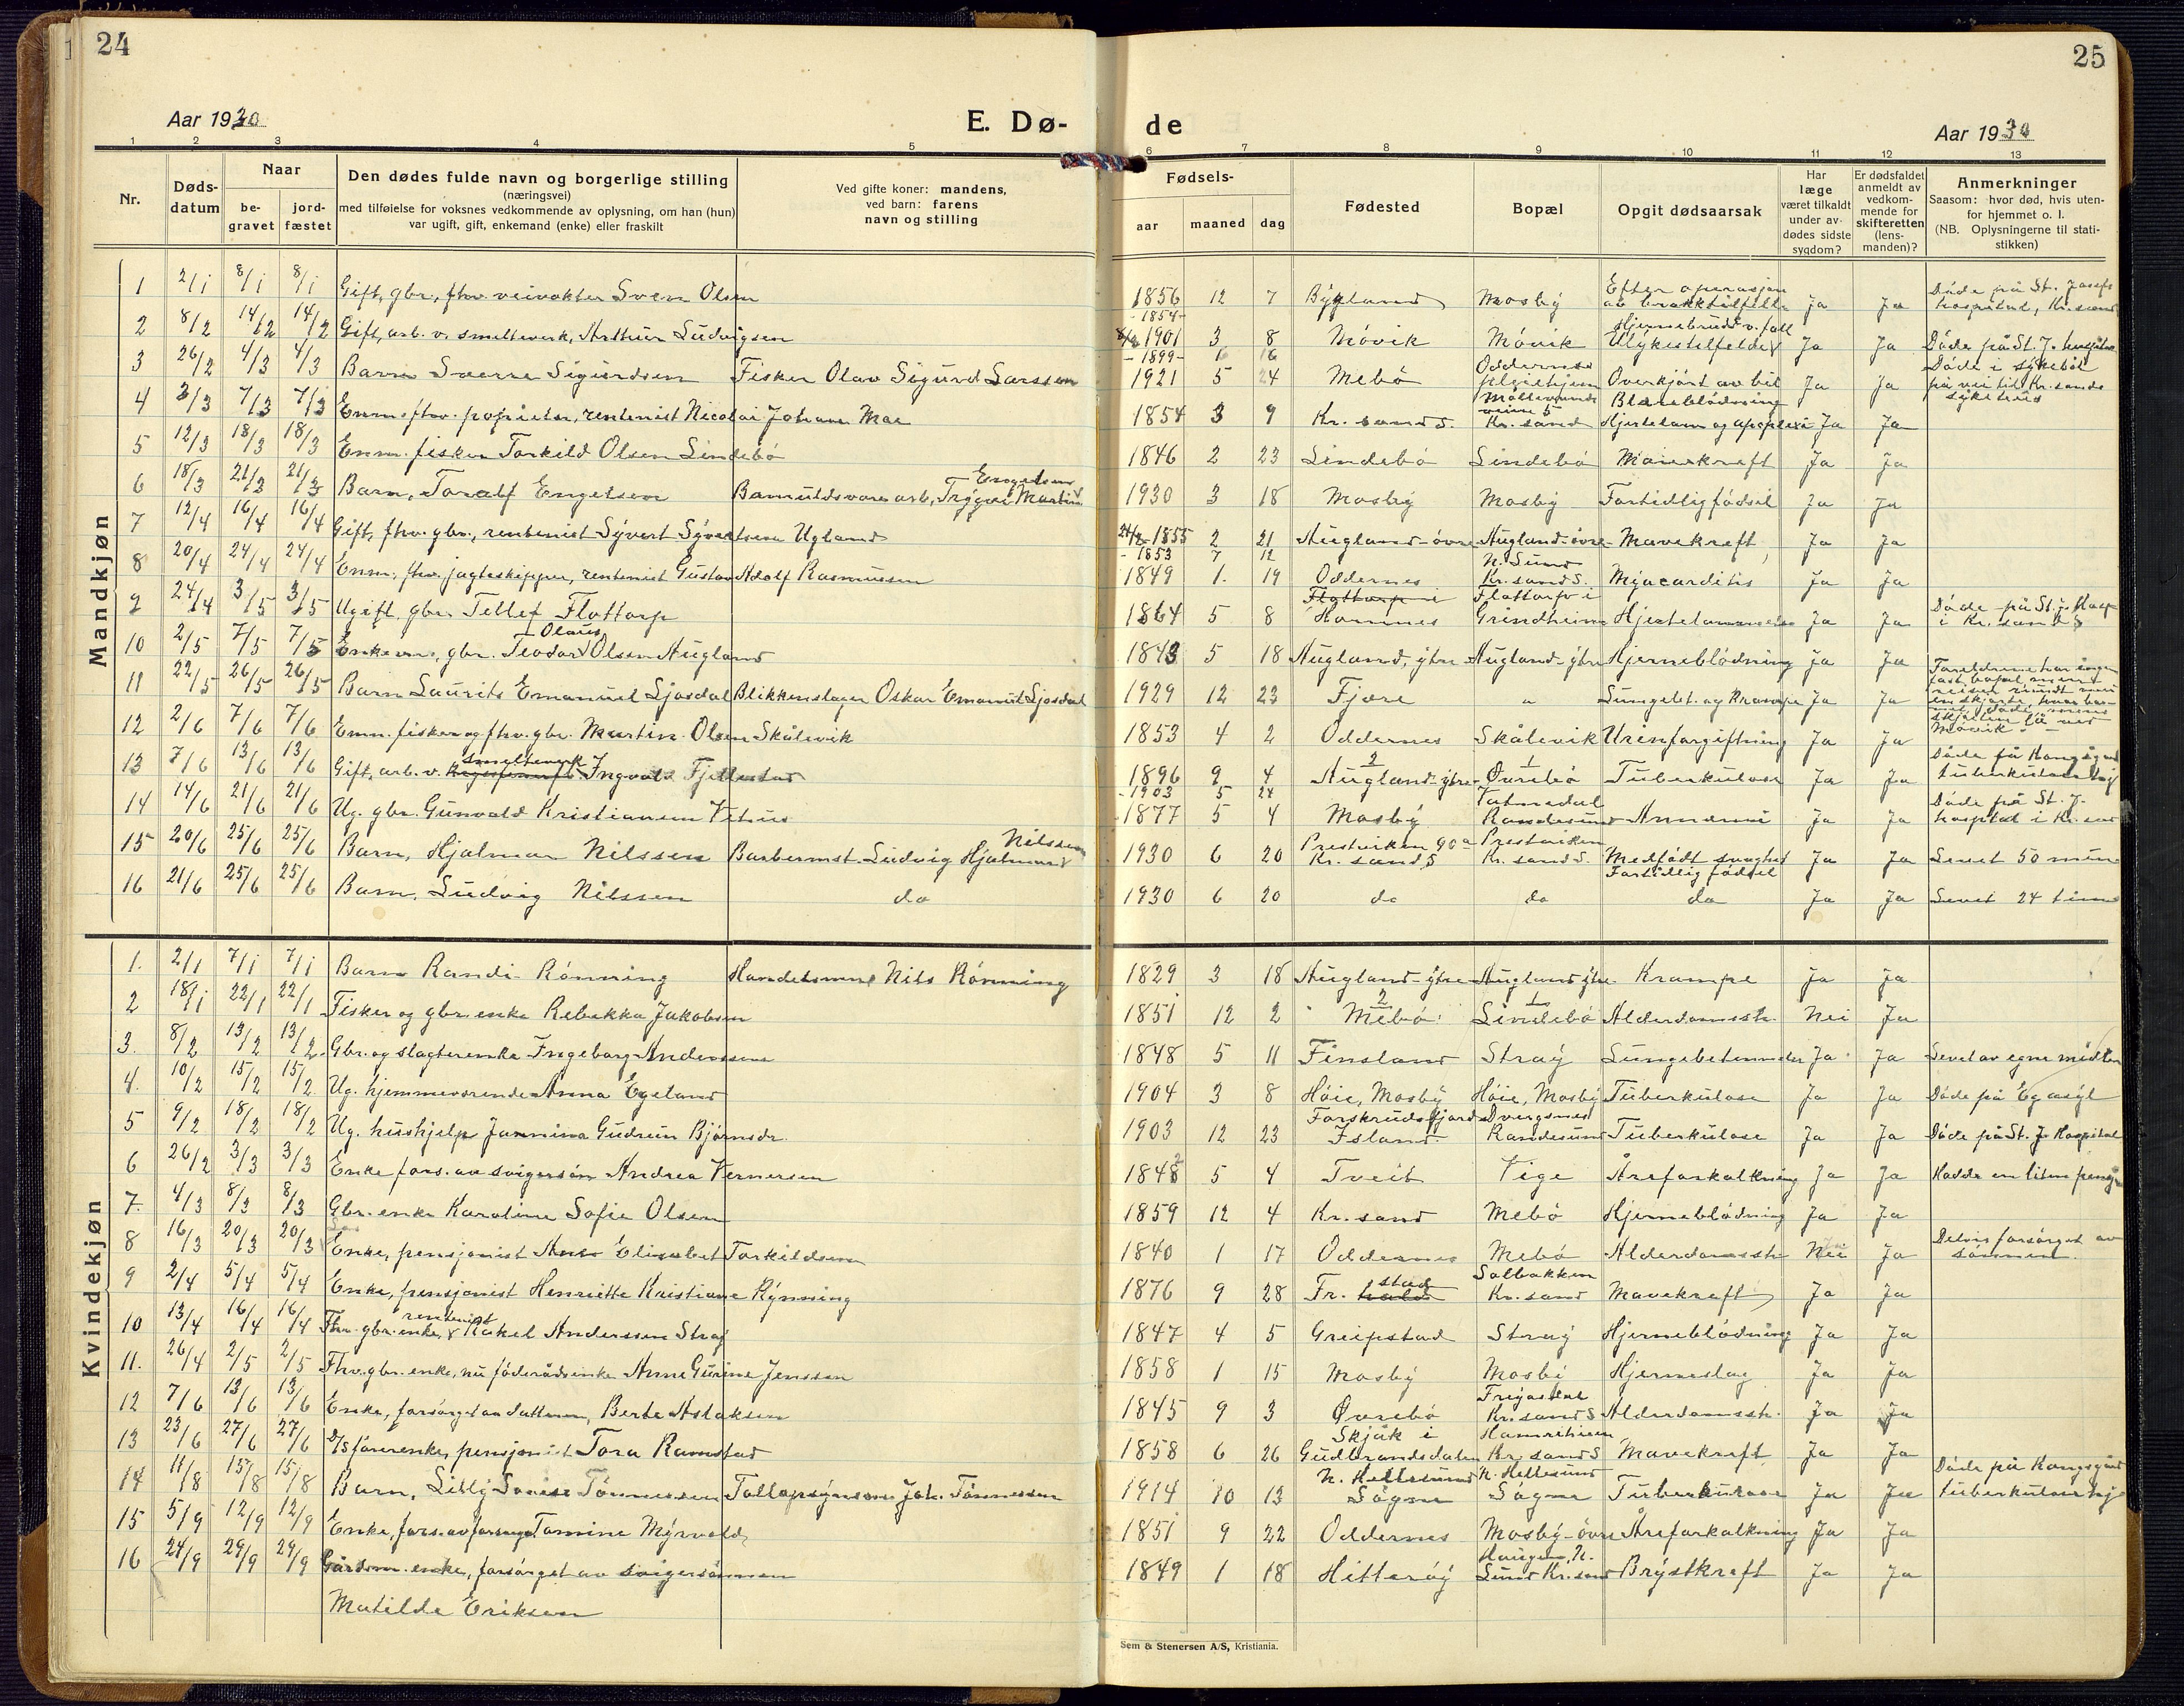 24
25
Aar 1930
E. Dø-
de
Aar 1930
1 2 3 4 5 6 7 8 9 10 11 12 13
Nr.
Døds-
datum
Naar
be-
gravet
jord-
fæstet
Den dødes fulde navn og borgerlige stilling
(næringsvei)
med tilføielse for voksnes vedkommende av oplysning, om han (hun)
var ugift, gift, enkemand (enke) eller fraskilt
Ved gifte koner: mandens,
ved barn: farens
navn og stilling
Fødsels-
aar maaned dag
Fødested
Bopæl
Opgit dødsaarsak
Har
læge
været tilkaldt
under av-
dødes sidste
sygdom?
Er dødsfaldet
anmeldt av
vedkom-
mende for
skifteretten
(lens-
manden)?
Anmerkninger
Saasom: hvor død, hvis uten-
for hjemmet o. l.
(NB. Oplysningerne til stati-
stikken)
Mandkjøn
1 2/1 8/1 8/1 Gift, gbr., fhv. veivokter Sven Olsen 1856 12 7 Bygland Mosby Efter operasjon av brokktilfelle Ja Ja Døde på St. Josefs hospital, Kr.sand
-1854-
2 8/2 14/2 14/2 Gift, arb. v. smelteverk, Arthur Ludvigsen 1901 3 8 Móvik Móvik Hjernebrudd v. fall Ulykestilfelde Ja Ja Døde på St. J. hospital
-1899- 1 16
3 26/2 4/3 4/3 Barn Sverre Sigurdsen Fisker Olav Sigurd Larssen 1921 5 24 Mebó Oddernes pleiehjem Overkjórt av bil Ja Ja Døde i sykebil på vei til Kr.sands sykehus
4 3/3 7/3 7/3 Enm. fhv. proprietær, rentenist Nicolai Johan Moe 1854 3 9 Kr.sand S. Kr.sand Blæreblødning Hjertelam og apoplexi Ja Ja
5 12/3 18/3 18/3 Enm. fisker Torkild Olsen Lindebó 1846 2 23 Lindebó Lindebó Mavekreft Ja Ja
6 18/3 21/3 21/3 Barn, Toralf Engelsen Bomuldsvarearb, Trygve Martin Engelsen 1930 3 18 Mosby Mosby Fortidlig fódsel Ja Ja
7 12/4 16/4 16/4 Gift, fhv. gbr., rentenist Syvert Syvertsen Ugland 1855 2 21 Augland-óvre Augland-óvre Mavekreft Ja Ja
-1853 7 12
8 20/4 24/4 24/4 Enm. fhv. jagteskipper, rentenist Gustav Adolf Rasmussen 1849 1. 19 Oddernes N. Sund Kr.sand S. Myocarditis Ja Ja
9 24/4 3/5 3/5 Ugift gbr. Tellef Flottorp 1864 5 8 Flottorp i Homnes Flottorp i Grindheim Hjertelammelse Ja Ja Døde på St. J. Hosp i Kr.sand S
10 2/5 7/5 7/5 Enkem., gbr. Teodor Olaus Olsen Augland 1843 5 18 Augland, ytre Augland-ytre Hjerneblødning Ja Ja
11 22/5 26/5 26/5 Barn Laurits Emanuel Ljosdal Blikkenslager Oskar Emanuel Ljosdal 1929 12 23 Fjære Lungebet. og Krampe Ja Ja Foreldrene har ingen fast bopel men reiser rundt med en skjøite, hvor barnet døde, mens skjøiten lå ved Móvik.
12 2/6 7/6 7/6 Emn. fisker og fhv. gbr. Martin Olsen Skålevik 1853 4 2 Oddernes Skålevik Urinforgiftning Ja Ja
13 7/6 13/6 13/6 Gift, arb. v. smelteverk Ingvald Fjellestad 1896 9 4 Augland-ytre 2 Óvrebó 1 Tuberkulose Ja Ja Døde på Kongsgård tuberkulosehj
-1903 5 24
14 14/6 21/6 21/6 Ug. gbr. Gunvald Kristiansen Vehus 1877 5 4 Mosby Randesund Ja Ja Døde på St. J. hospital i Kr.sand
15 20/6 25/6 25/6 Barn, Hjalmar Nilssen Barbermst. Ludvig Hjalmar Nilssen 1930 6 20 Prestviken 90a Kr.sand S Prestvikan Kr.sand S. Medfødt svaghet Fortidlig fødsel Ja Ja Levet 50 min
16 21/6 25/6 25/6 Barn, Ludvig Nilssen do 1930 6 20 do do do Ja Ja Levet 24 tim
Kvindekjøn
1. 2/1 7/1 7/1 Barn Randi Rónning Handelsmnd Nils Rónning 1829 3 18 Augland-ytre Augland ytre Krampe Ja Ja
2 18/1 22/1 22/1 Fisker og gbr. enke Rebekka Jakobsen 1851 12 2 Mebó 2 Lindebó 1 Alderdomssv. Nei Ja
3. 8/2 13/2 13/2 Gbr. og slagterenke Ingeborg Anderssen 1848 5 11 Finsland Stray Lungebetennelse Ja Ja Levet av egne midler
4. 10/2 15/2 15/2 Ug. hjemmeværende Anna Egeland 1904 3 8 Hóie, Mosby Hóie, Mosby Tuberkulose Ja Ja Døde på Eg asyl
5 9/2 18/2 18/2 Ug. hushjelp Jannina Gudrun Bjórnsdr. 1903 12 23 Forskrudsfjord Island Dvergsnes Randesund Tuberkulose Ja Ja Døde på St. J. Hospital
6 26/2 3/3 3/3 Enke fors. av svigersón Andrea Vernersen 1848 5 4 Tveit Vige Åreforkalkning Ja Ja Hadde en liten pensjon
7 4/3 8/3 8/3 Gbr. enke Karoline Sofie Olsen 1859 12 4 Kr.sand Mebó Hjerneblødning Ja Ja
8 16/3 20/3 20/3 Enke, pensjonist Ane Elisabet Torkildsen 1840 1 17 Oddernes Mebó Alderdomssv. Nei Ja Delvis forsórget av sónnen
9 2/4 5/4 5/4 Enke, pensjonist Henriette Kristiane Rynning 1876 9 28 Fr.stad hald Solbakken Kr.sand Mavekreft Ja Ja
10 13/4 16/4 16/4 Fhv. gbr. enke, rentenist Rakel Anderssen Stray 1847 4 5 Greipstad Stray Hjerneblødning Ja Ja
11. 26/4 2/5 2/5 Fhv. gbr. enke, nu fóderådsenke Anne Gurine Jenssen 1858 1 15 Mosby Mosby Hjerneslag Ja Ja
12 7/6 13/6 13/6 Enke, forsórget av datteren, Berte Aslaksen 1845 9 3 Óvrebó Kr.sand S Alderdomssv. Ja Ja
13 23/6 27/6 27/6 D/S fórerenke, pensjonist Tora Ramstad 1858 6 26 Skjåk i Gudbrandsdalen Kr.sand S Mavekreft Ja Ja
14 11/8 15/8 15/8 Barn, Lilly Lovise Tónnessen Tollopsynsm. Joh. Tónnessen 1914 10 13 N. Hellesund Sógne N. Hellesund Sógne Tuberkulose Ja Ja Døde på Kongsgård tuberkulosehj
15 5/9 12/9 12/9 Enke, fors. av forsorgs. Tomine Myrvold 1851 9 22 Oddernes Mosby-óvre Åreforkalkning Ja Ja
16 24/9 29/9 29/9 Gårdm. enke, forsórget av svigersónnen 1849 1 18 Hitteróy Haugen, N. Sund Kr.sand Brystkreft Ja Ja
Matilde Eriksen
Sem & Stenersen A/S, Kristiania.